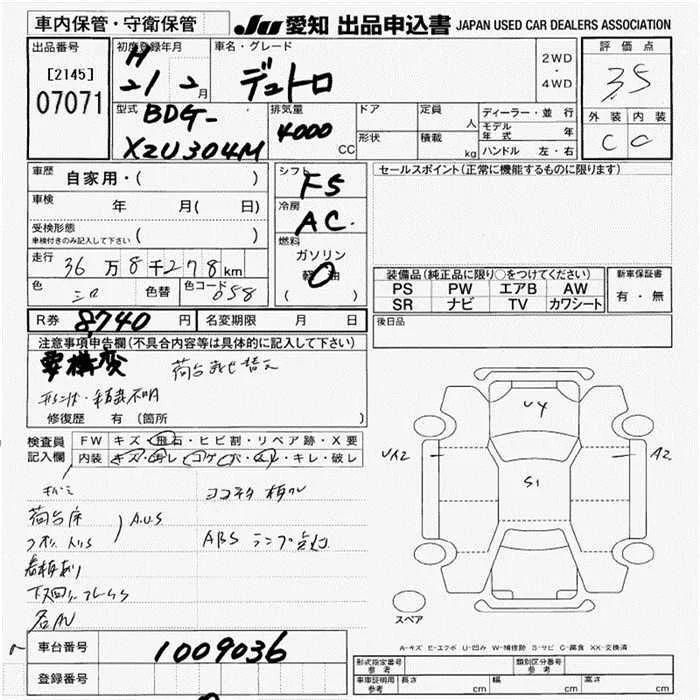 車内保管・守衛保管
JU 愛知 出品申込書 JAPAN USED CAR DEALERS ASSOCIATION
出品番号
[2145]
07071
初度登録年月
H
21 2 月
車名・グレード
デュトロ
2WD
・
4WD
評価点
3.5
外装 内装
C C
型式
BDG-
XZU304M
排気量
4000
CC
ドア
形状
定員
人
積載
kg
ディーラー・並行
モデル年式 年
ハンドル 左・右
車歴
自家用・( )
車検
年 月( 日)
受検形態
車検付きのみ記入して下さい ( )
走行
36万8千278km
色
シロ
色替
色コード
058
シフト
F5
冷房
AC.
燃料
ガソリン
軽油
( )
セールスポイント(正常に機能するものに限ります)
装備品(純正品に限り○をつけてください)
PS PW エアB AW
SR ナビ TV カワシート
新車保証書
有・無
後日品
R券 8,740 円
名変期限 月 日
注意事項申告欄(不具合内容等は具体的に記入して下さい)
要構変
荷台載せ替え
形状・積載不明
修復歴 有 (箇所 )
検査員
記入欄
FW キズ・飛石・ヒビ割・リペア跡・X要
内装 キズ・汚レ・コゲ・穴・スレ・キレ・破レ
荷台床
A.U.S
ABS ランプ点灯
UY
S1
UA2
A2
スペア
A-キズ E-エクボ U-凹み W-補修跡 S-サビ C-腐食 XX-交換済
車台番号
1009036
登録番号
形式指定番号
参考
類別区分番号
参考
車庫証明用
参考
長さ cm
幅 cm
高さ cm